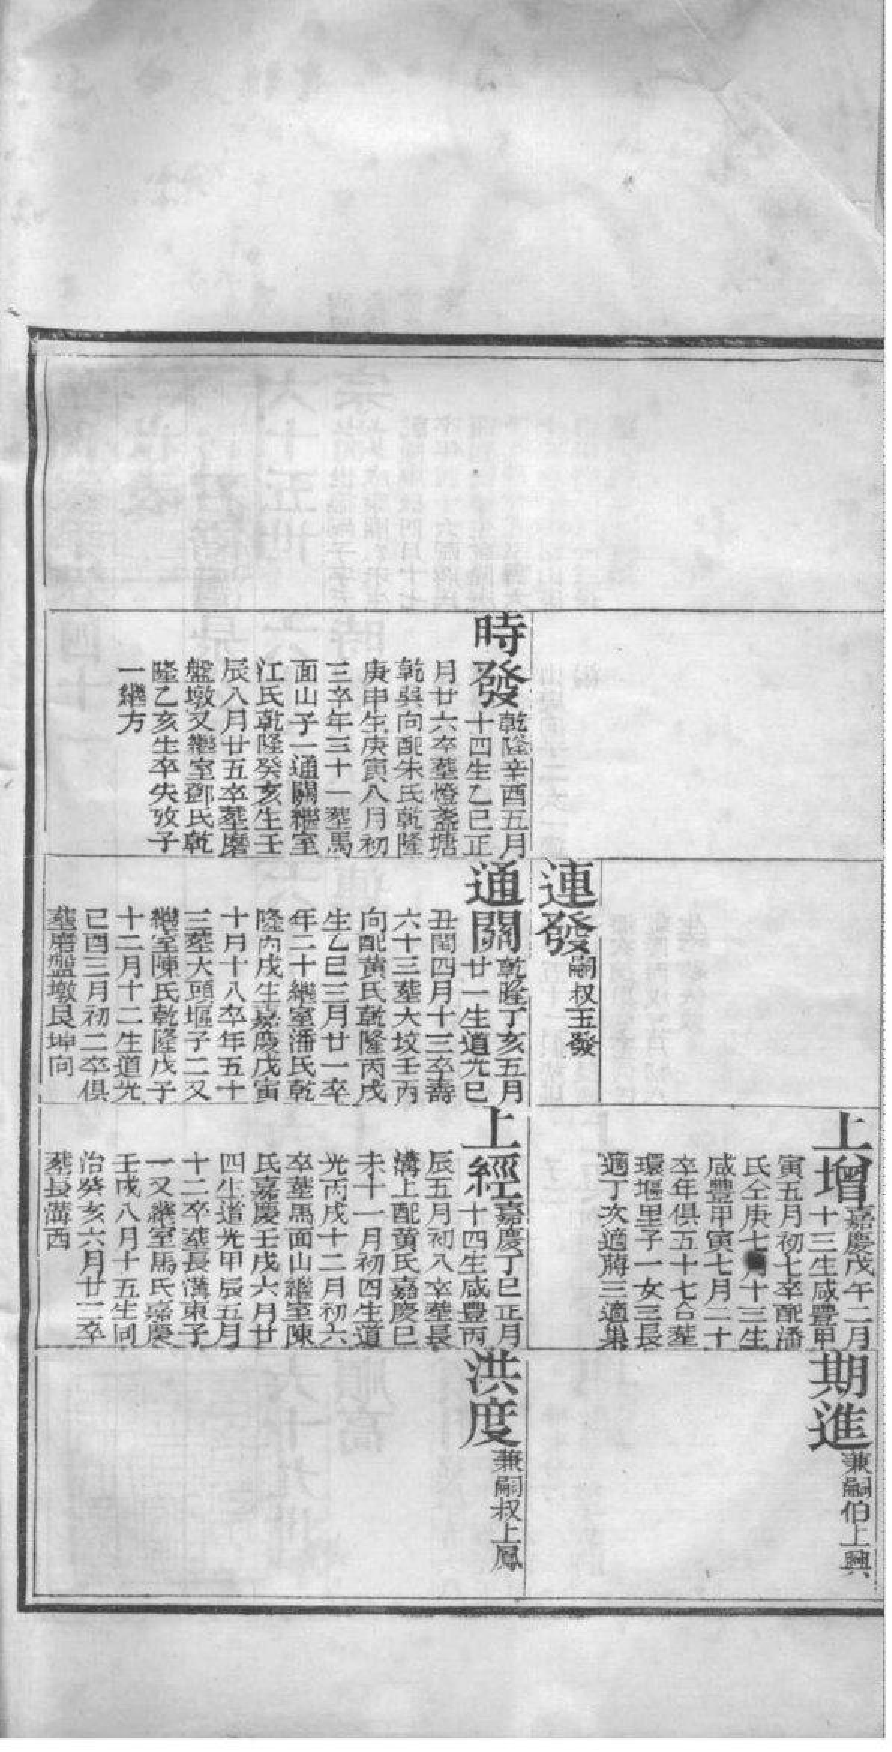 時發
乾隆辛酉五月
十四生乙巳正
月廿六卒塟燈盞塘
乾巽向配朱氏乾隆
庚申生庚寅八月初
三卒年三十一塟馬
面山子一通關繼室
江氏乾隆癸亥生壬
辰八月廿五卒塟磨
盤墩又繼室鄧氏乾
隆乙亥生卒失攷子
一繼方
連發
嗣叔玉發
通關
乾隆丁亥五月
廿一生道光巳
丑閏四月十三卒壽
六十三塟大坟壬丙
向配黃氏乾隆丙戌
生乙巳三月廿一卒
年二十繼室潘氏乾
隆丙戌生嘉慶戊寅
十月十八卒年五十
三塟大頭堀子二又
繼室陳氏乾隆戊子
十二月十二生道光
己酉三月初二卒俱
塟磨盤墩艮坤向
上增
嘉慶戊午二月
十三生咸豐甲
寅五月初七卒配潘
氏仝庚七月十三生
咸豐甲寅七月二十
卒年俱五十七合塟
環堰里子一女三長
適丁次適蔣三適巢
上經
嘉慶丁巳正月
十四生咸豐丙
辰五月初八卒塟長
溝上配黃氏嘉慶巳
未十一月初四生道
光丙戌十二月初六
卒塟馬面山繼室陳
氏嘉慶壬戌六月廿
四生道光甲辰五月
十二卒塟長溝東子
一又繼室馬氏嘉慶
壬戌八月十五生同
治癸亥六月廿二卒
塟長溝西
期進
兼嗣伯上興
洪度
兼嗣叔上鳳